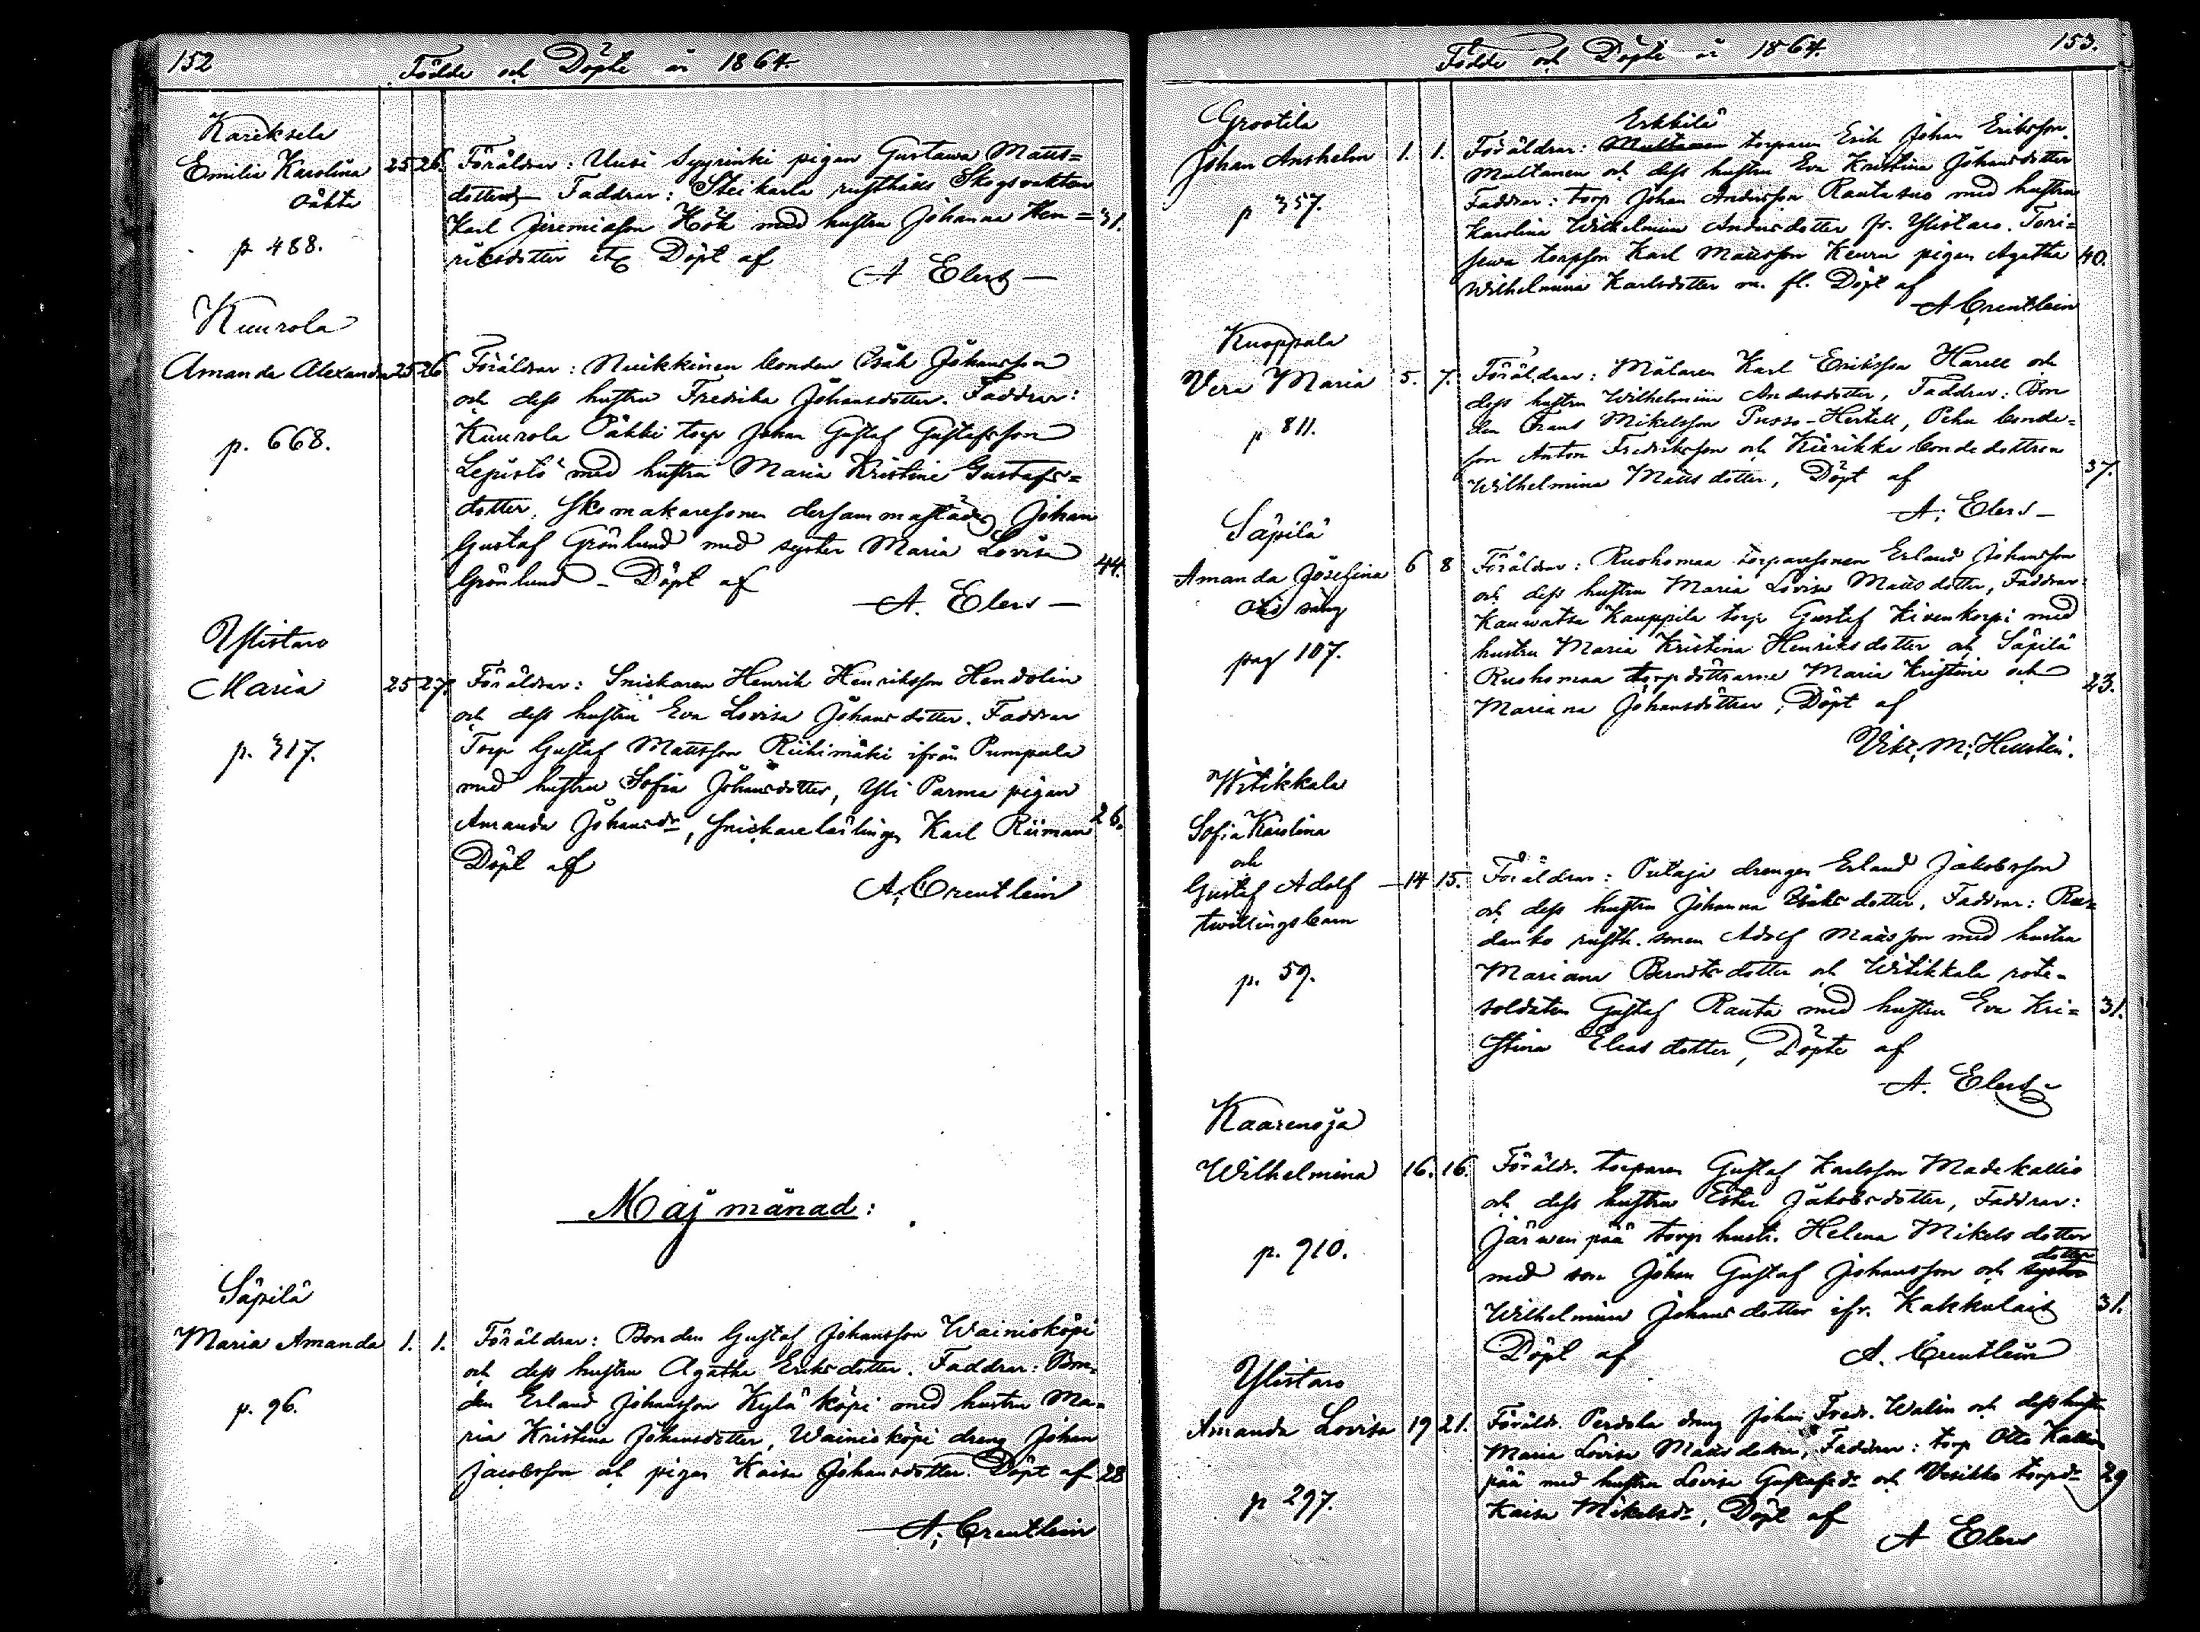 152
Födde och Döpte år 1864.
Kareksela
Emilia Karolina 25 26. Föräldrar: Uusi Syyrinki pigan Gustawa Matts=
oäkta dotter Faddrar: Steikarla rusthålls Skogsvakten
Karl Jeremiasson Höök med hustru Johanna Hen= 31.
p 488. riksdotter etc Döpt af
A Elers —
Kuurola
Amanda Alexandra 25 26 Föräldrar: Nuikkinen bonden Isak Johansson
och dess hustru Fredrika Johansdotter. Faddrar:
p. 668. Kuurola Päkki torp Johan Gustaf Gustafsson
Lepistö med hustru Maria Kristina Gustafs=
dotter, Skomakaresonen dersammastädes Johan
Gustaf Grönlund med syster Maria Lovisa 44.
Grönlund — Döpt af
A. Elers —
Ylistaro
Maria 25 27. Föräldrar: Snickaren Henrik Henriksson Hendolin
och dess hustru Eva Lovisa Johansdotter. Faddrar
p. 317. Torp Gustaf Mattsson Riihimäki ifrån Pumpula
med hustru Sofia Johansdotter, Yli Parma pigan
Amanda Johansdr, snickarelärlingen Karl Riiman 26.
Döpt af
A. Creutlein
Maj månad:
Säpilä
Maria Amanda 1. 1. Föräldrar: Bonden Gustaf Johansson Wainioköpi
och dess hustru Agatha Eriksdotter. Faddrar: Bon=
p. 96. den Erland Johansson Kyläköpi med hustru Ma=
ria Kristina Johansdotter, Wainioköpi dreng Johan
Jacobsson och pigan Kaisa Johansdotter. Döpt af 28
A. Creutlein
153.
Födde och Döpte år 1864.
Grootila Erkkilä
Johan Anshelm 1. 1. Föräldrar: Multanen torparen Erik Johan Eriksson
Multanen och dess hustru Eva Kristina Johansdotter
p 357. Faddrar: torp Johan Andersson Rautasuo med hustru
Karolina Wilhelmina Andersdotter fr. Ylistaro. Tori=
sewa torpson Karl Mattsson Keuru pigan Agatha 40.
Wilhelmina Karlsdotter m. fl. Döpt af
A Creutlein
Kuoppala
Vera Maria 5. 7. Föräldrar: Målaren Karl Eriksson Harell och
dess hustru Wilhelmina Andersdotter, Faddrar: Bon
p 811. den Frans Mikelsson Pusso-Hertell, Pehu bonde=
son Anton Fredriksson och Kierikka bondedottren
Wilhelmina Mattsdotter, Döpt af 37.
A. Elers —
Säpilä
Amanda Josefina 6 8 Föräldrar: Ruohomaa torparesonen Erland Johansson
och dess hustru Maria Lovisa Mattsdotter, Faddrar:
Kauwatsa Kauppila torp Gustaf Kivenkorpi med
pag 107. hustru Maria Kristina Henriksdotter och Säpilä
Ruohomaa torpdöttrarne Maria Kristina och 23.
Mariana Johansdöttrar, Döpt af
Vik. M. Hellstén.
Witikkala
Sofia Karolina
och
Gustaf Adolf — 14 15. Föräldrar: Putaja drengen Erland Jakobsson
twillingsbarn och dess hustru Johanna Isaksdotter, Faddrar: Ru=
danko rusth. sonen Adolf Mattsson med hustru
p. 59. Mariana Berndtsdotter och Witikkala rote=
soldaten Gustaf Rauta med hustru Eva Kri= 31.
stina Eliasdotter, Döpte af
A. Elers
Kaarenoja
Wilhelmina 16. 16. Föräldr. torparen Gustaf Karlsson Madekallio
och dess hustru Ester Jakobsdotter, Faddrar:
p. 910. Järwenpää torp hustr. Helena Mikelsdotter
dotter
med son Johan Gustaf Johansson och syster
Wilhelmina Johansdotter ifr. Kakkulais 31.
Döpt af A. Creutlein
Ylistaro
Amanda Lovisa 19 21. Föräldr. Perdola dreng Johan Fredr. Walin och dess hustr
Maria Lovisa Mattsdotter, Faddrar: torp Otto Kallion
p 297. pää med hustru Lovisa Gustafsdr och Wesikko torpdr 29
Kaisa Mikelsdr, Döpt af
A Elers